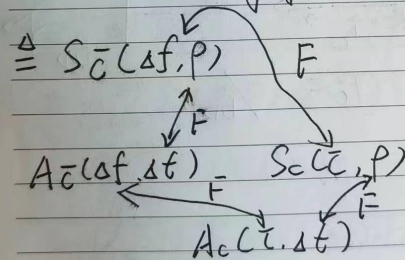 ≜ S_c̄(Δf, ρ) F
F
A_c̄(Δf, Δt) S_c(τ̄, ρ)
F F
A_c(τ̄, Δt)